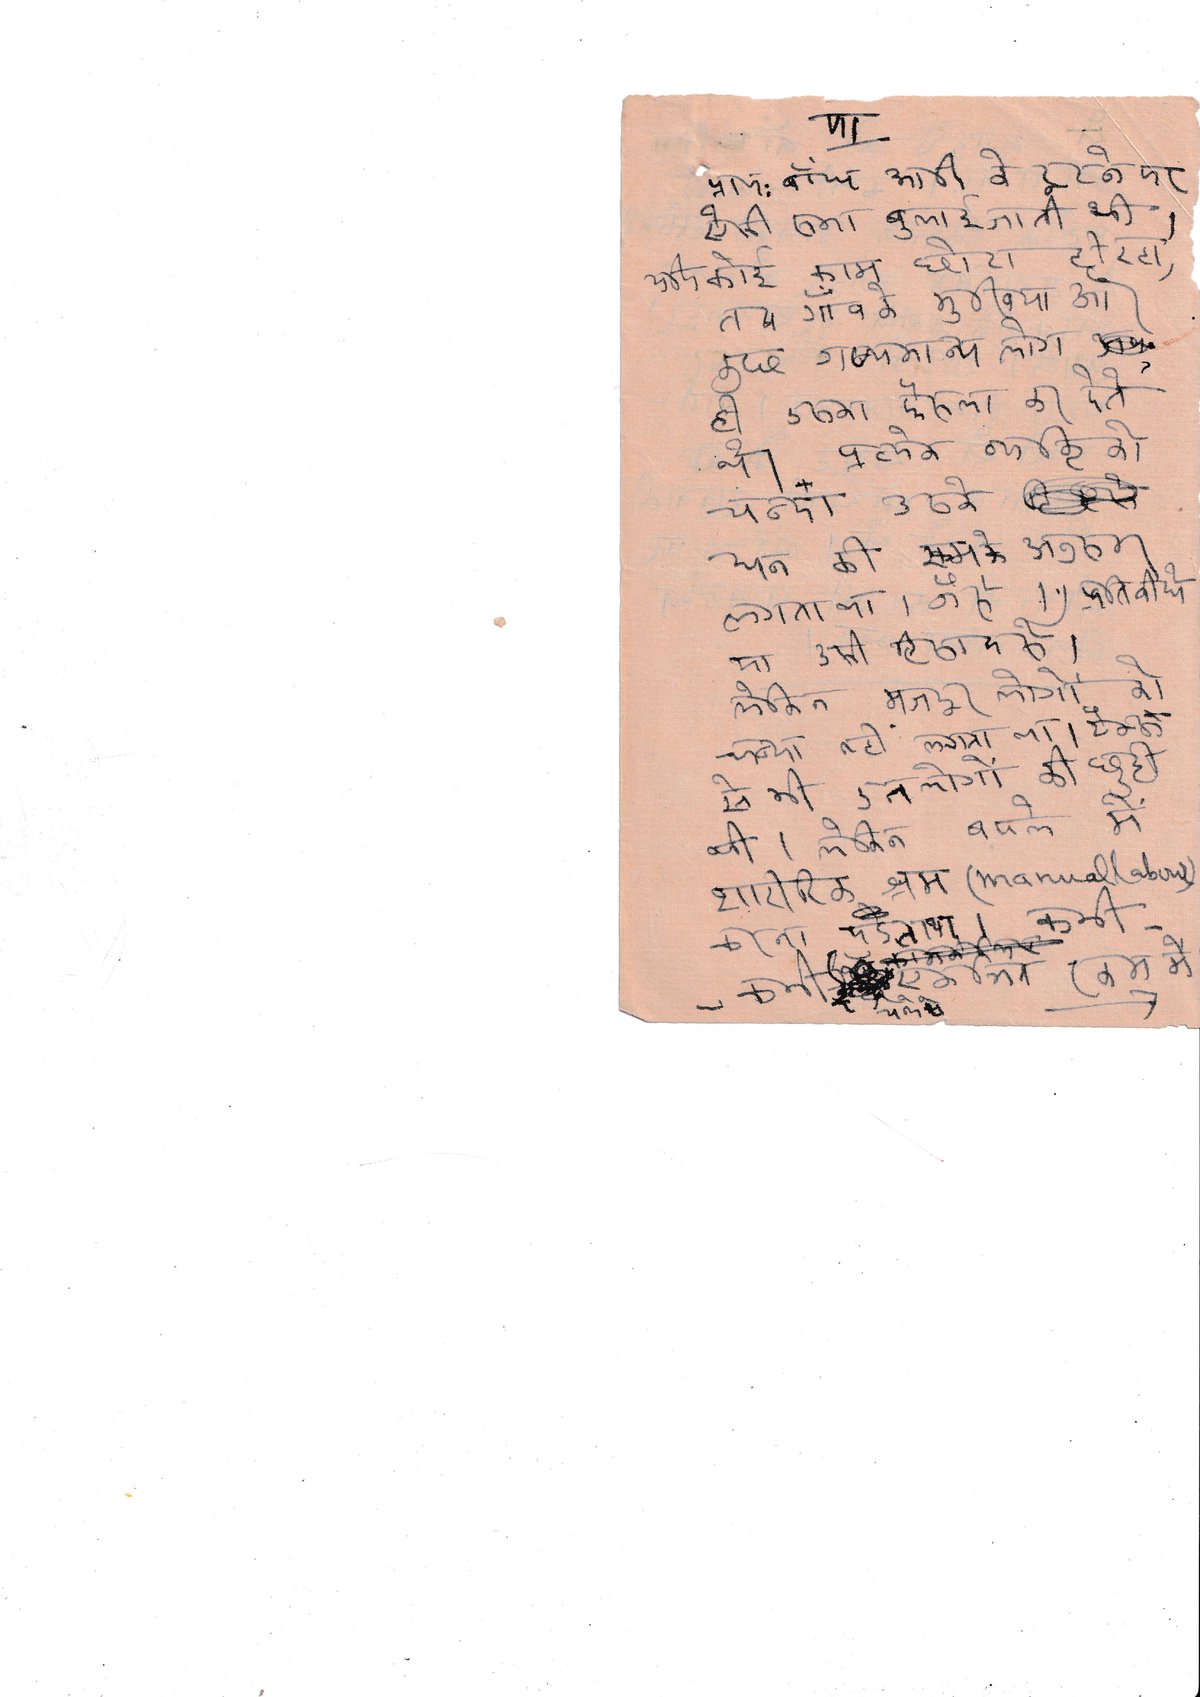 था
प्रायः बाँध आदी के टूटने पर
ऐसी सभा बुलाई जाती थी।
यदि कोई काम छोटा होता,
तब गाँव के मुखिया और
कुछ गण्यमान्य लोग
ही उसका फैसला कर देते
थे। प्रत्येक व्यक्ति को
चन्दा उसके
धन की अनुसार
लगता था। जैसे 1) प्रति बीघे
या उसी हिसाब से।
लेकिन मजदूर लोगों को
चन्दा नही लगता था। टैक्स
से भी उन लोगों की छुट्टी
थी। लेकिन बदले में
शारीरिक श्रम (manual labour)
करना पड़ता था। कभी-
-कभी (कम में